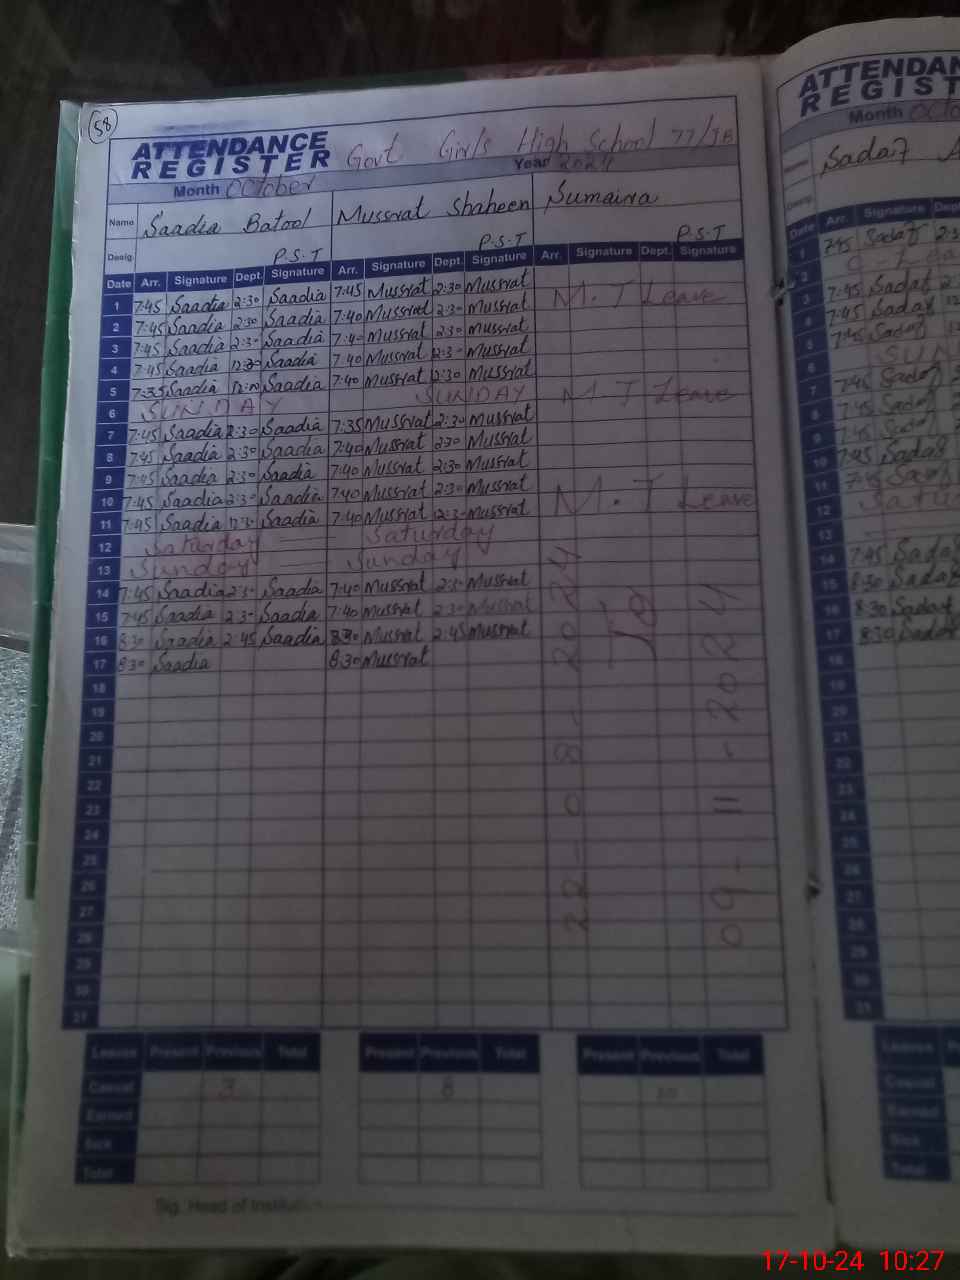 58
ATTENDANCE REGISTER Govt Girls High School 77/JB
Month October Year 2024
Name Saadia Batool Mussrat Shaheen Sumaira
Desig. P.S.T P.S.T P.S.T
Date Arr. Signature Dept. Signature Arr. Signature Dept. Signature Arr. Signature Dept. Signature
1 7:45 Saadia 2:30 Saadia 7:45 Mussrat 2:30 Mussrat M.T Leave
2 7:45 Saadia 2:30 Saadia 7:40 Mussrat 2:30 Mussrat
3 7:45 Saadia 2:30 Saadia 7:40 Mussrat 2:30 Mussrat
4 7:45 Saadia 12:30 Saadia 7:40 Mussrat 12:30 Mussrat
5 7:35 Saadia 12:00 Saadia 7:40 Mussrat 12:30 Mussrat
6 SUNDAY SUNDAY M.T Leave
7 7:45 Saadia 2:30 Saadia 7:35 Mussrat 2:30 Mussrat
8 7:45 Saadia 2:30 Saadia 7:40 Mussrat 2:30 Mussrat
9 7:45 Saadia 2:30 Saadia 7:40 Mussrat 2:30 Mussrat
10 7:45 Saadia 2:30 Saadia 7:40 Mussrat 2:30 Mussrat M.T Leave
11 7:45 Saadia 12:30 Saadia 7:40 Mussrat 12:30 Mussrat
12 Saturday Saturday
13 Sunday Sunday
14 7:45 Saadia 2:30 Saadia 7:40 Mussrat 2:30 Mussrat
15 7:45 Saadia 2:30 Saadia 7:40 Mussrat 2:30 Mussrat
16 8:30 Saadia 2:45 Saadia 8:30 Mussrat 2:45 Mussrat
17 8:30 Saadia 8:30 Mussrat
18
19
20
21
22
23
24
25
26
27
28
29
30
31
22-08-2024
To
09-11-2024
Leaves Present Previous Total Present Previous Total Present Previous Total
Casual 3 8 10
Earned
Sick
Total
Sig. Head of Institution
ATTENDAN
REGIST
Month Octo
Sadaf
Desig.
Date Arr. Signature Dept
1 7:45 Sadaf 2:3
2
3 7:45 Sadaf
4 7:45 Sadaf
5 7:45 Sadaf
6 SUN
7 7:45 Sadaf
8 7:45 Sadaf
9 7:45 Sadaf
10 7:45 Sadaf
11 7:45 Sadaf
12 Satu
13
14 7:45 Sadaf
15 8:30 Sadaf
16 8:30 Sadaf
17 8:30 Sadaf
18
19
20
21
22
23
24
25
26
27
28
29
30
31
Leaves
Casual
Earned
Sick
Total
17-10-24 10:27